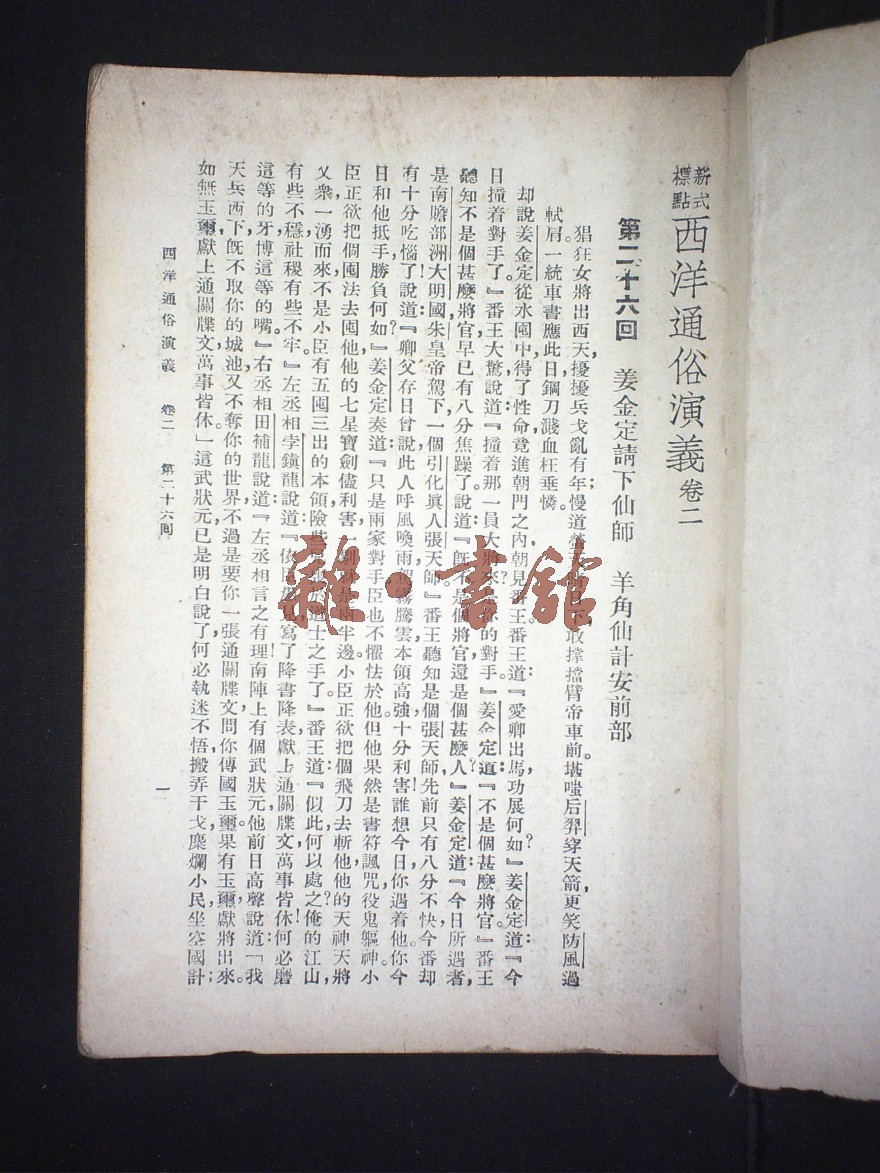 新式標點 西洋通俗演義 卷二
第二十六回　姜金定請下仙師　羊角仙計安前部
猖狂女將出西天，擾擾兵戈亂有年；慢道螢 日下，敢撑擋臂帝車前。堪嗤后羿穿天箭，更笑防風過
軾肩。一統車書應此日，鋼刀濺血枉垂憐。
却說姜金定從水囤中，得了性命，竟進朝門之內，朝見番王。番王道：『愛卿出馬，功展何如？』姜金定道：『今
日撞着對手了。』番王大驚，說道：『撞着那一員大將來 你的對手？』姜金定道：『不是個甚麼將官。』番王
聽知不是個甚麼將官，早已有八分焦躁了。說道：『旣不是個將官，還是個甚麼人？』姜金定道：『今日所遇者，
是南贍部洲大明國朱皇帝駕下，一個引化眞人張天師。』番王聽知是個張天師，先前只有八分不快，今番却
有十分吃惱了！說道：『卿父存日，曾說此人呼風喚雨，駕霧騰雲，本領高強，十分利害，誰想今日你遇着他。你今
日和他抵手，勝負何如？』姜金定奏道：『只是兩家對手，臣也不懼怯於他。但他果然是書符諷咒，役鬼驅神。小
臣正欲把個囤法去囤他，他的七星寶劍儘利害，一 兩半邊。小臣正欲把個飛刀去斬他，他的天神天將
又衆一湧而來。不是小臣有五囤三出的本領，險些兒 於道士之手了。』番王道：『似此何以處之？俺的江山，
有些不穩，社稷有些不牢。』左丞相孛鎮龍說道：『依臣愚見，寫了降書降表，獻上通關牒文，萬事皆休！何必磨
這等的牙，博這等的嘴。』右丞相田補龍說道：『左丞相言之有理。南陣上有個武狀元，他前日高聲說道：「我
天兵西下，旣不取你的城池，又不奪你的世界，不過是要你一張通關牒文，問你傳國玉璽。果有玉璽，獻將出來。
如無玉璽，獻上通關牒文，萬事皆休。」這武狀元已是明白說了，何必執迷不悟，搬弄干戈，糜爛小民，坐空國計；
西洋通俗演義　卷二　第二十六回　一
雜·書館